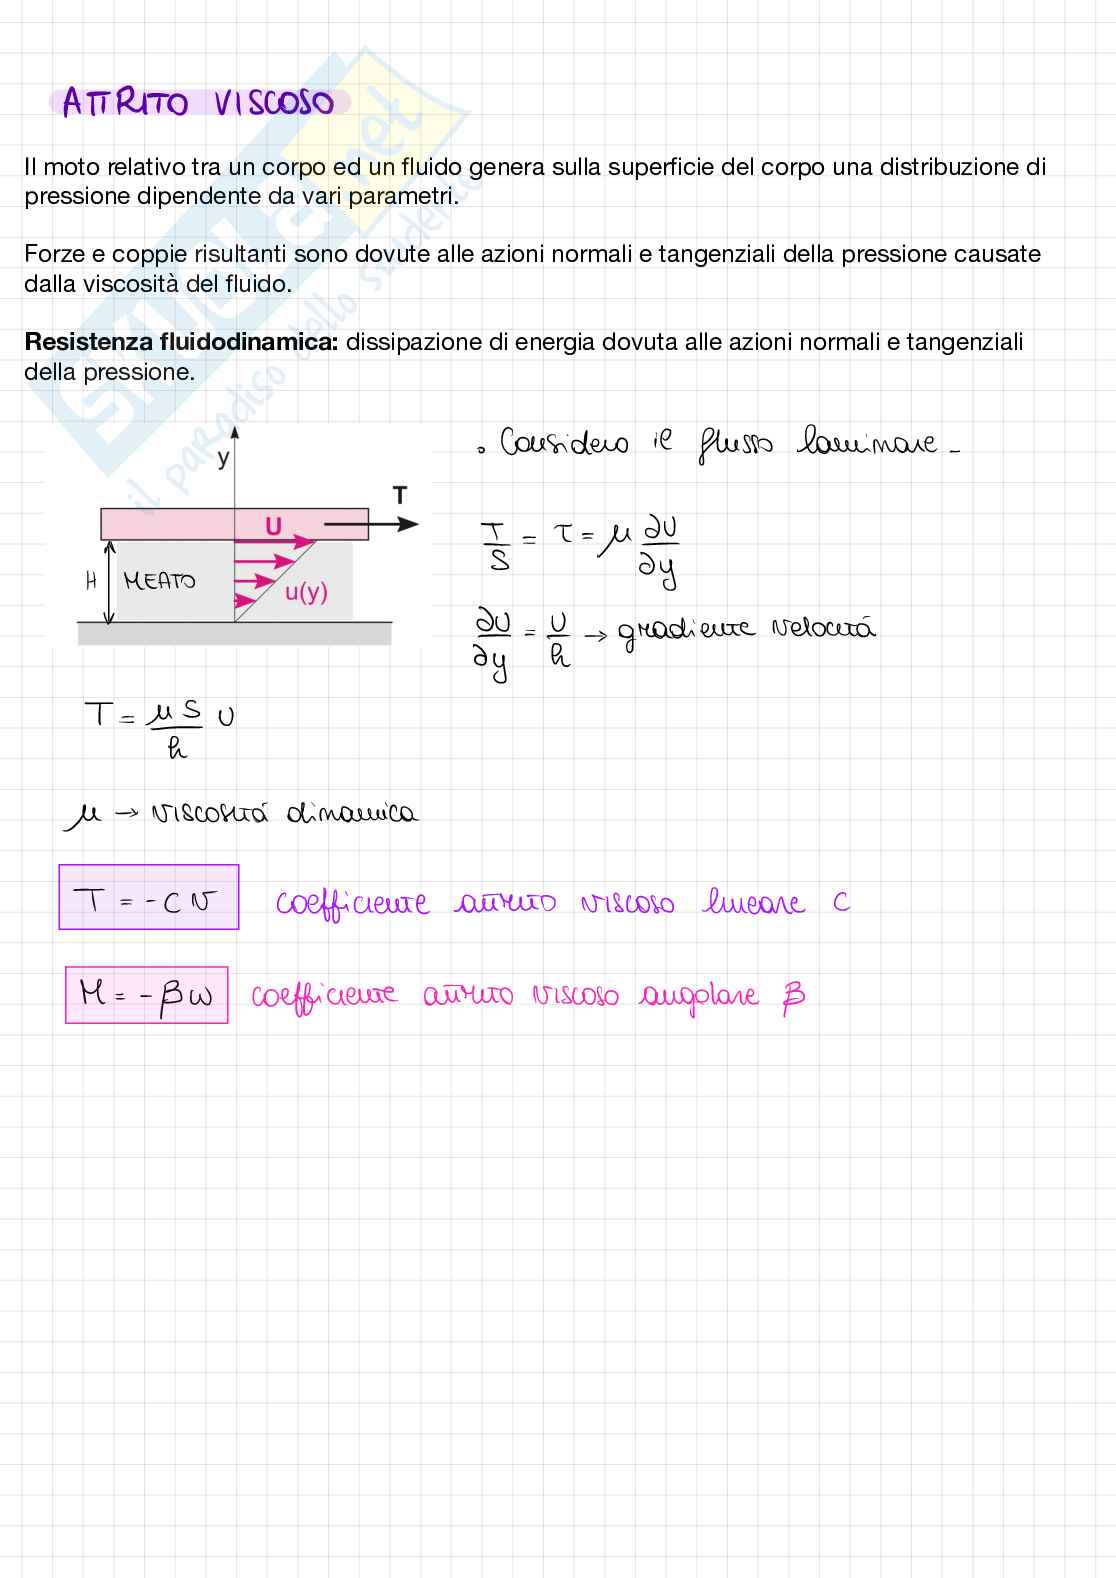 ATTRITO VISCOSO
Il moto relativo tra un corpo ed un fluido genera sulla superficie del corpo una distribuzione di
pressione dipendente da vari parametri.
Forze e coppie risultanti sono dovute alle azioni normali e tangenziali della pressione causate
dalla viscosità del fluido.
Resistenza fluidodinamica: dissipazione di energia dovuta alle azioni normali e tangenziali
della pressione.
SKUOLA.net
il paradiso dello studente
• Considero il flusso laminare -
y
T
U
H
MEATO
u(y)
T/S = τ = μ ∂U/∂y
∂U/∂y = U/h → gradiente velocità
T = μS/h U
μ → viscosità dinamica
T = - c v coefficiente attrito viscoso lineare c
M = - β ω coefficiente attrito viscoso angolare β